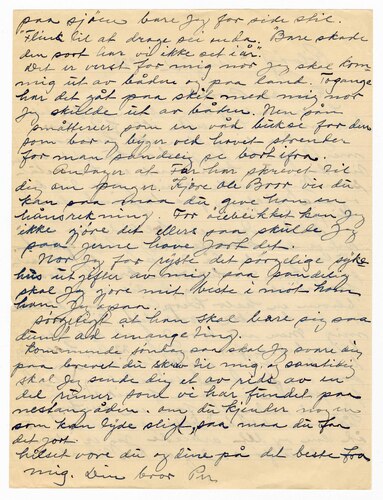 paa sjøen bare jeg for side stil.
Flink til at drage sei enda. Brre skade
den sort har vi ikke set i år.
Det er verst for mig nor Jeg skal kom
mig ut av båden og paa land. To gange
har det gåt paa skit med mig nor
Jeg skulde ut av båden. Men sån
småtterier som en våd bukse for den
som bor og bygger ved havet
for man
Andager at Far har skrevet til
dig om penger. Kjøre Ole Broor vis du
kan saa maa du give ham en
hånsrekning. For øieblikket kan Jeg
ikke gjøre det ellers saa skulde Jeg
saa jerne have Jort det.
Nor Jeg for ryste det sørgelige syke
hus utgifter av mig saa
skal Jeg gjøre mit beste i mot ham
Sørgeligt at han skal bare sig saa
dumt ad
Kommende søndag saa skal Jeg svare dig
paa brevet du skrev til mig, og samtidig
skal Jeg sende dig et av rits av en
del runer som vi har fundet paa
nestangården. om du kjender nogen
som kan tyde sligt, saa maa du få
det Jort.
hilset være du og dine på det beste fra
mig. Din broor Per